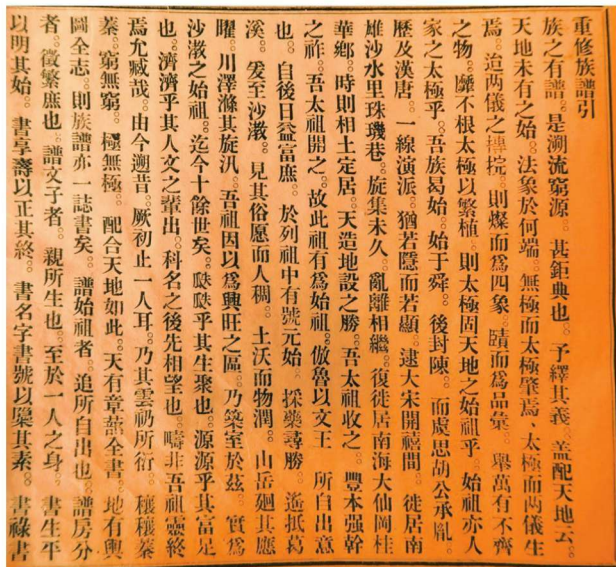 重修族譜引
族之有譜。是溯流窮源。甚鉅典也。予繹其義。盖配天地云。
天地未有之始。法象於何端。無極而太極肇焉、太極而兩儀生
焉。迨兩儀之摶捖。則燦而為四象。賾而為品彙。舉萬有不齊
之物。靡不根太極以繁植。則太極固天地之始祖乎。始祖亦人
家之太極乎。吾族曷始。始于舜。後封陳。而虞思胡公承胤。
歷及漢唐。一線演派。猶若隱而若顯。逮大宋開禧間。徙居南
雄沙水里珠璣巷。旋集未久。亂離相繼。復徙居南海大仙岡桂
華鄉。時則相土定居。天造地設之勝。吾太祖收之。豐本强幹
之祚。吾太祖開之。故此祖有為始祖。倣魯以文王所自出意
也。自後日益富庶。於列祖中有號元始。採藥尋勝。遙抵葛
溪。爰至沙滘。見其俗愿而人稠。土沃而物潤。山岳廻其應
曜。川澤滌其旋汎。吾祖因以為興旺之區。乃築室於玆。實為
沙滘之始祖。迄今十餘世矣。瓞瓞乎其生聚也。源源乎其富足
也。濟濟乎其人文之輩出。科名之後先相望也。疇非吾祖靈終
焉允臧哉。由今遡昔。厥初止一人耳。乃其雲礽所衍。穰穰蓁
蓁。窮無窮。極無極。配合天地如此。天有章蔀全書。地有輿
圖全志。則族譜亦一誌書矣。譜始祖者。追所自出也。譜房分
者。徵繁庶也。譜文子者。親所生也。至於一人之身。書生平
以明其始。書享壽以正其終。書名字書號以㮣其素。書祿書